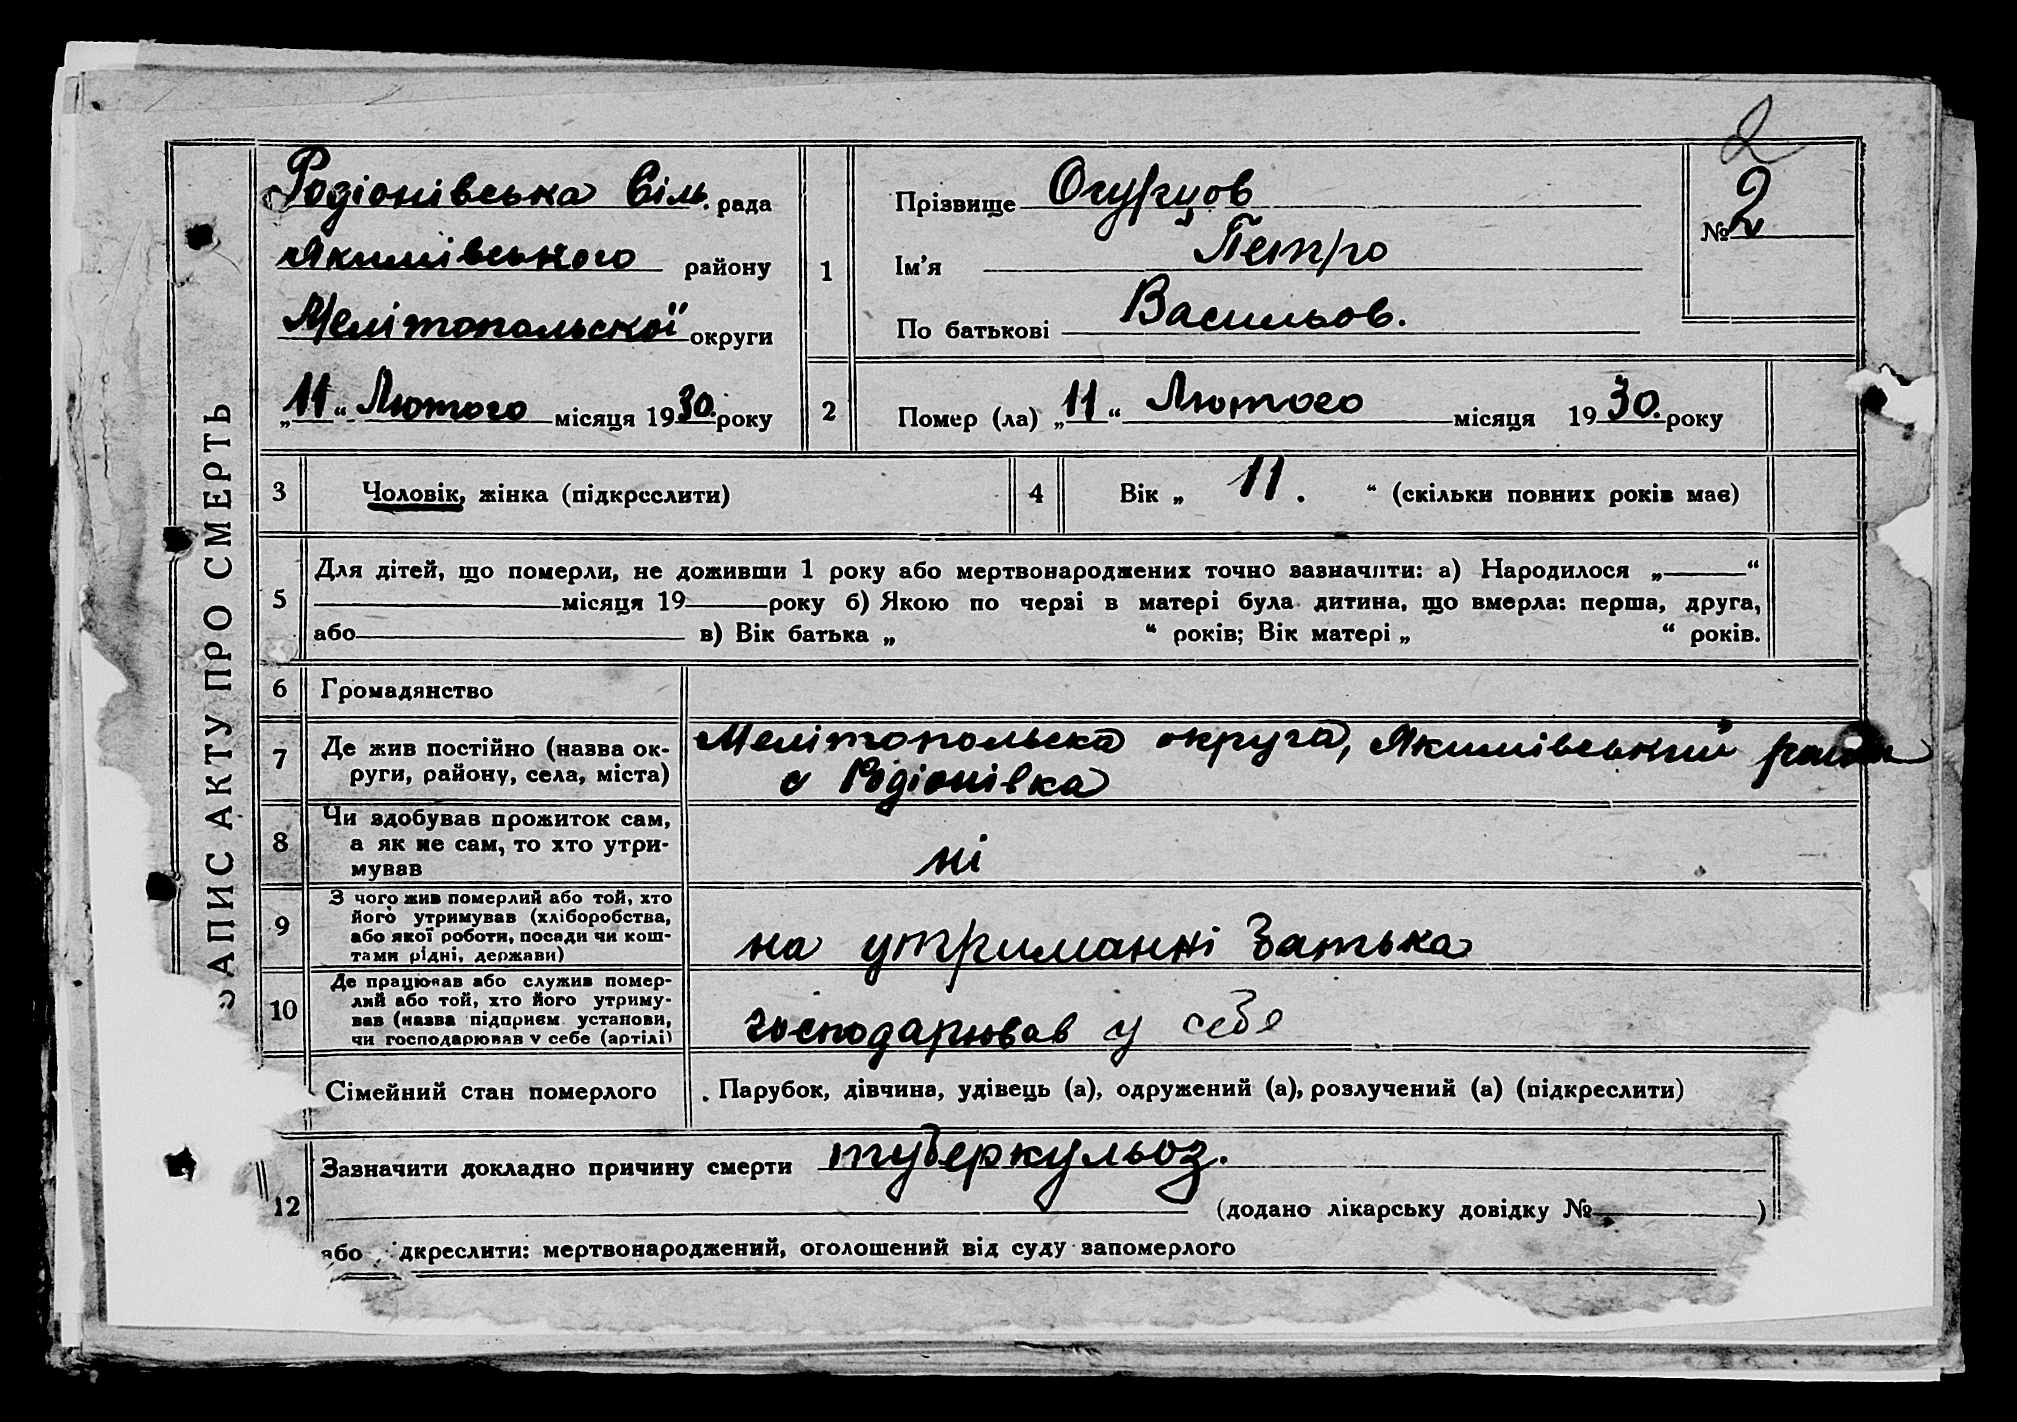 2
ЗАПИС АКТУ ПРО СМЕРТЬ
Родіонівська Сіль. рада
Якимівського району
Мелітопольскої округи
„11“ Лютого місяця 1930. року
1
Прізвище Огурцов
Ім’я Петро
По батькові Васильов.
№ 2
2 Помер (ла) „11“ Лютого місяця 1930. року
3 Чоловік, жінка (підкреслити)
4 Вік „ 11. “ (скільки повних років має)
5 Для дітей, що померли, не доживши 1 року або мертвонароджених точно зазначити: а) Народилося „ “
місяця 19 року б) Якою по черзі в матері була дитина, що вмерла: перша, друга,
або в) Вік батька „ “ років; Вік матері „ “ років.
6 Громадянство
7 Де жив постійно (назва ок-
руги, району, села, міста)
Мелітопольска округа, Якимівський район
с Родіонівка
8 Чи здобував прожиток сам,
а як не сам, то хто утри-
мував
ні
9 З чого жив померлий або той, хто
його утримував (хліборобства,
або якої роботи, посади чи кош-
тами рідні, держави)
на утриманні батька
10 Де працював або служив помер-
лий або той, хто його утриму-
вав (назва підприєм. установи,
чи господарював у себе (артілі)
господарював у себе
Сімейний стан померлого
Парубок, дівчина, удівець (а), одружений (а), розлучений (а) (підкреслити)
12 Зазначити докладно причину смерти туберкульоз.
(додано лікарську довідку № )
або дкреслити: мертвонароджений, оголошений від суду запомерлого